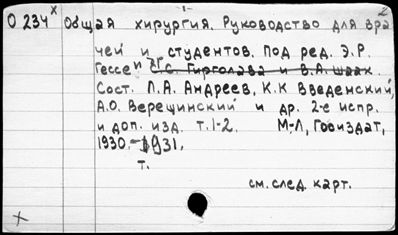 О 234 х Общая хирургия. Руководство для вра
чей и студентов. Под ред. Э.Р.
Гессе и др. С.С. Гирголава и В.А. Шаак.
Сост. Л.А. Андреев, К.К Введенский,
А.О. Верещинский и др. 2-е испр.
и доп. изд. т.1-2. М-Л, Госиздат,
1930-1931.
т.
см. след. карт.